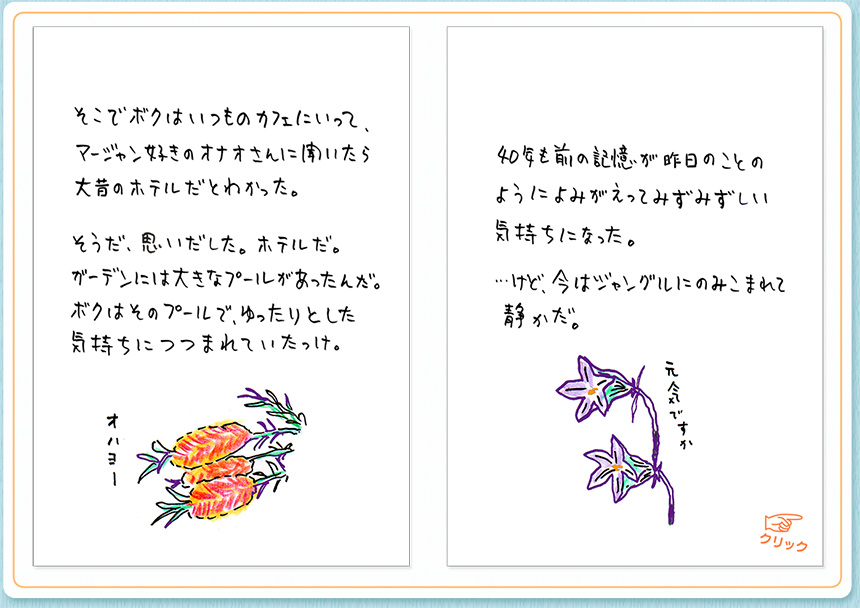 そこでボクはいつものカフェにいって、
マージャン好きのオナオさんに聞いたら
大昔のホテルだとわかった。
そうだ、思いだした。ホテルだ。
ガーデンには大きなプールがあったんだ。
ボクはそのプールで、ゆったりとした
気持ちにつつまれていたっけ。
オハヨー
40年も前の記憶が昨日のことの
ようによみがえってみずみずしい
気持ちになった。
…けど、今はジャングルにのみこまれて
静かだ。
元気ですか
クリック